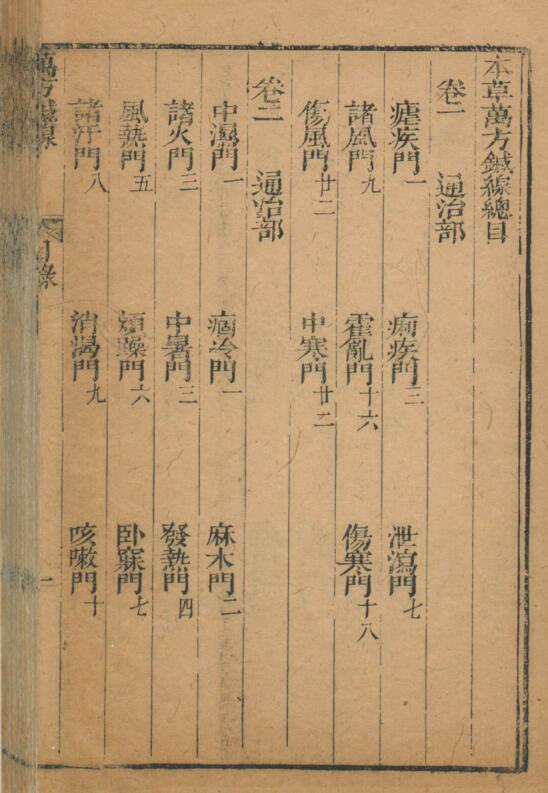 本草萬方鍼線總目
卷一 通治部
瘧疾門一 痢疾門三 泄瀉門七
諸風門九 霍亂門十六 傷寒門十八
傷風門廿二 中寒門廿二
卷二 通治部
中濕門一 痼冷門一 麻木門二
諸火門三 中暑門三 發熱門四
風熱門五 煩躁門六 卧寐門七
諸汗門八 消渴門九 咳嗽門十
萬方鍼線 目錄 一